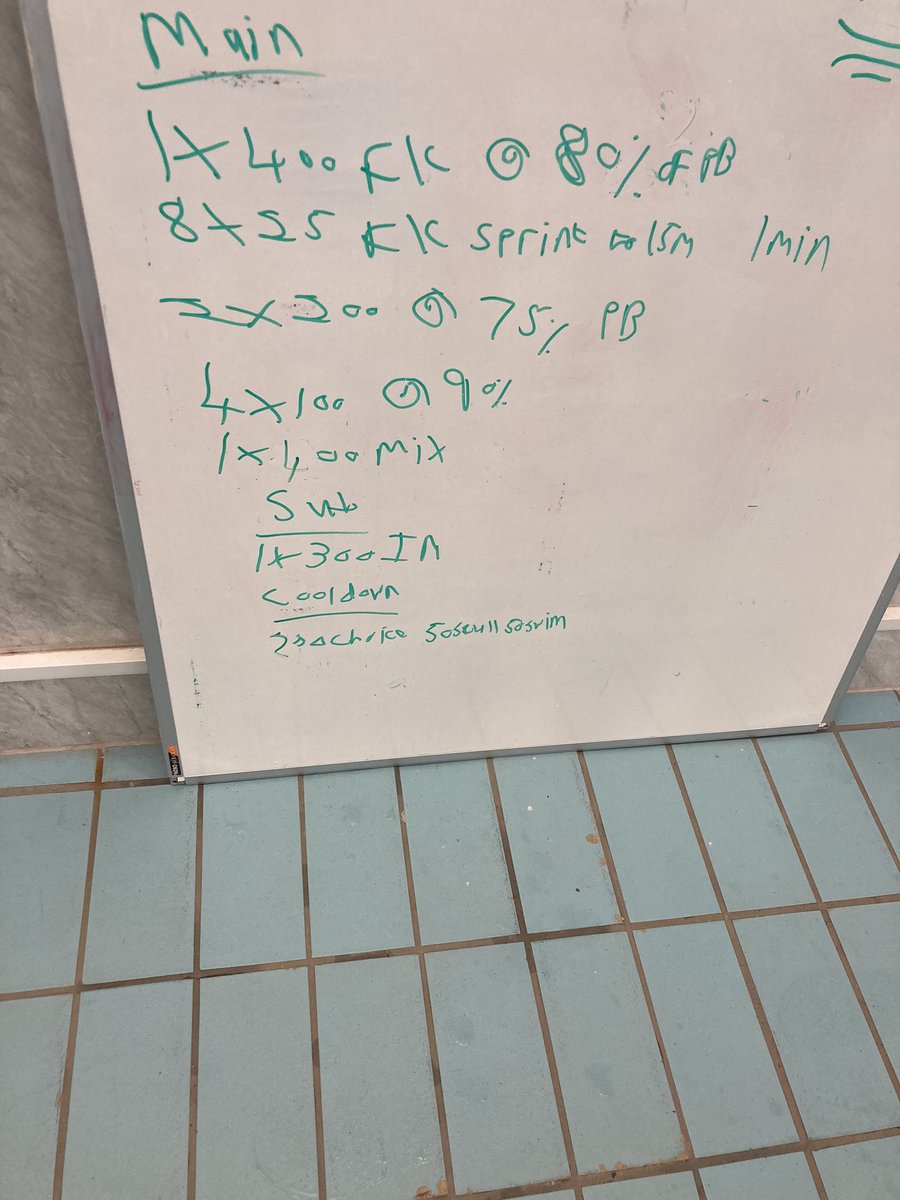 Main
1x400 FK @ 80% of PB
8x25 FK sprint to 15m 1min
2x200 @ 75% PB
4x100 @ 90%
1x400 mix
Sub
1x300 IM
Cooldown
200 choice 50scull 50swim